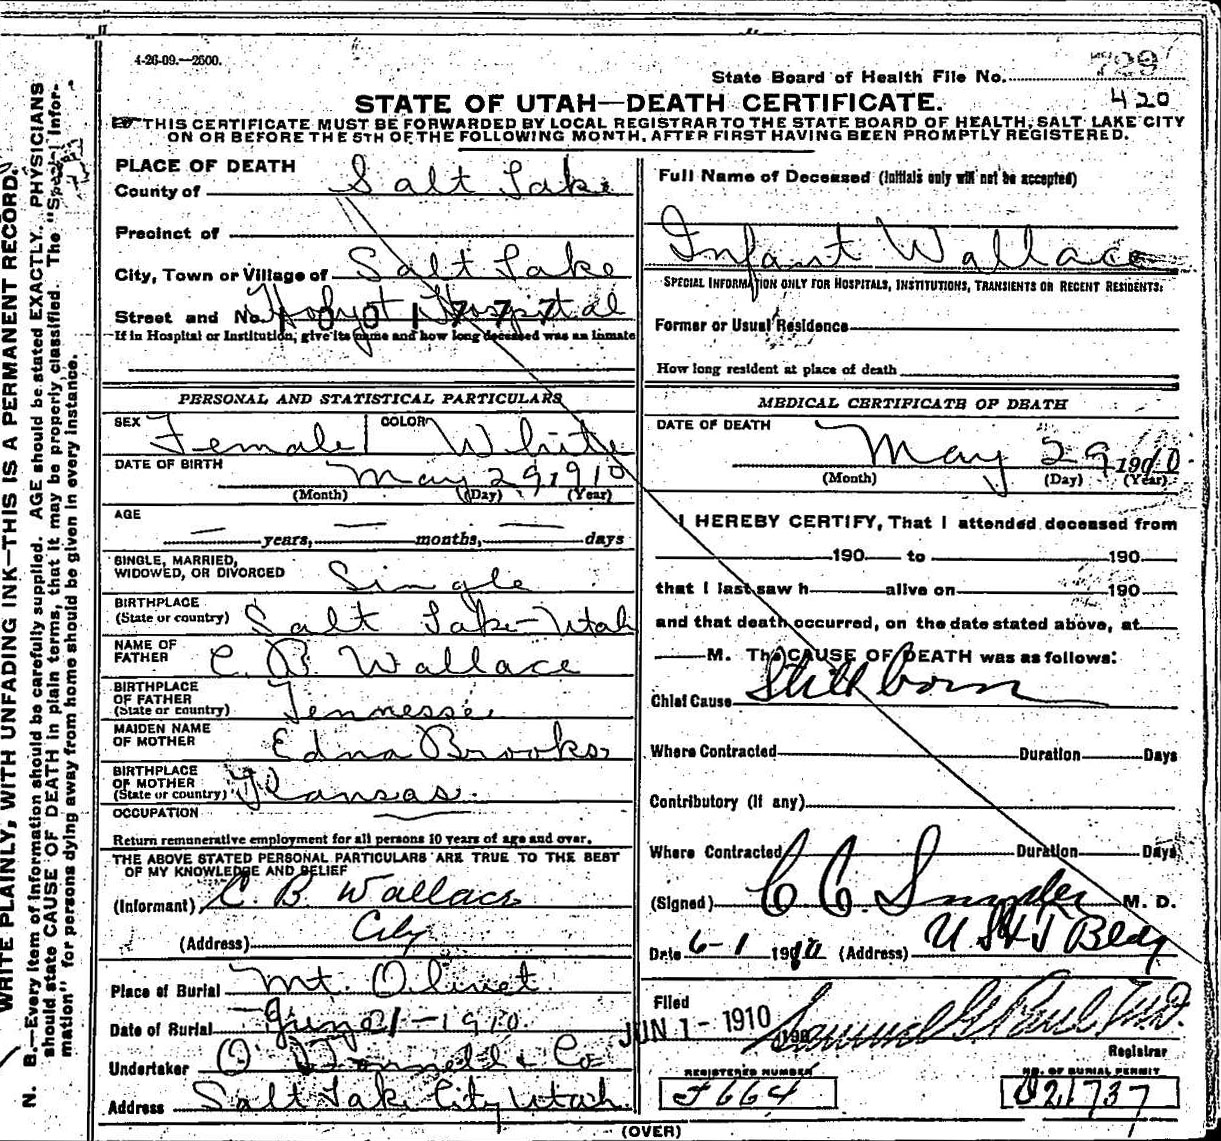 4-26-09.—2500.
State Board of Health File No. 729
420
STATE OF UTAH—DEATH CERTIFICATE.
THIS CERTIFICATE MUST BE FORWARDED BY LOCAL REGISTRAR TO THE STATE BOARD OF HEALTH, SALT LAKE CITY
ON OR BEFORE THE 5TH OF THE FOLLOWING MONTH, AFTER FIRST HAVING BEEN PROMPTLY REGISTERED.
WRITE PLAINLY, WITH UNFADING INK—THIS IS A PERMANENT RECORD.
N. B.—Every item of information should be carefully supplied. AGE should be stated EXACTLY. PHYSICIANS
should state CAUSE OF DEATH in plain terms, that it may be properly classified. The "Special Infor-
mation" for persons dying away from home should be given in every instance.
PLACE OF DEATH
County of Salt Lake
Precinct of
City, Town or Village of Salt Lake
Street and No. Hospital
001777
If in Hospital or Institution, give its name and how long deceased was an inmate
PERSONAL AND STATISTICAL PARTICULARS
SEX Female COLOR White
DATE OF BIRTH May 29 1910
(Month) (Day) (Year)
AGE
— years, — months, — days
SINGLE, MARRIED,
WIDOWED, OR DIVORCED Single
BIRTHPLACE
(State or country) Salt Lake-Utah
NAME OF
FATHER C. B. Wallace
BIRTHPLACE
OF FATHER
(State or country) Tennesse
MAIDEN NAME
OF MOTHER Edna Brooks
BIRTHPLACE
OF MOTHER
(State or country) Kansas.
OCCUPATION —
Return remunerative employment for all persons 10 years of age and over.
THE ABOVE STATED PERSONAL PARTICULARS ARE TRUE TO THE BEST
OF MY KNOWLEDGE AND BELIEF
(Informant) C. B. Wallace
(Address) City
Place of Burial Mt. Olivet.
Date of Burial June 1-1910.
Undertaker O'Donnell & Co
Address Salt Lake City Utah
Full Name of Deceased (Initials only will not be accepted)
Infant Wallace
SPECIAL INFORMATION ONLY FOR HOSPITALS, INSTITUTIONS, TRANSIENTS OR RECENT RESIDENTS:
Former or Usual Residence
How long resident at place of death
MEDICAL CERTIFICATE OF DEATH
DATE OF DEATH
May 29 1910
(Month) (Day) (Year)
I HEREBY CERTIFY, That I attended deceased from
190 to 190
that I last saw h alive on 190
and that death occurred, on the date stated above, at
M. The CAUSE OF DEATH was as follows:
Chief Cause Still born
Where Contracted Duration Days
Contributory (If any)
Where Contracted Duration Days
(Signed) C C. Snyder M. D.
Date 6-1 1910 (Address) U S & T Bldg
Filed JUN 1 - 1910 190 Samuel G. Paul M.D.
Registrar
REGISTERED NUMBER
J 664
NO. OF BURIAL PERMIT
O21737
(OVER)